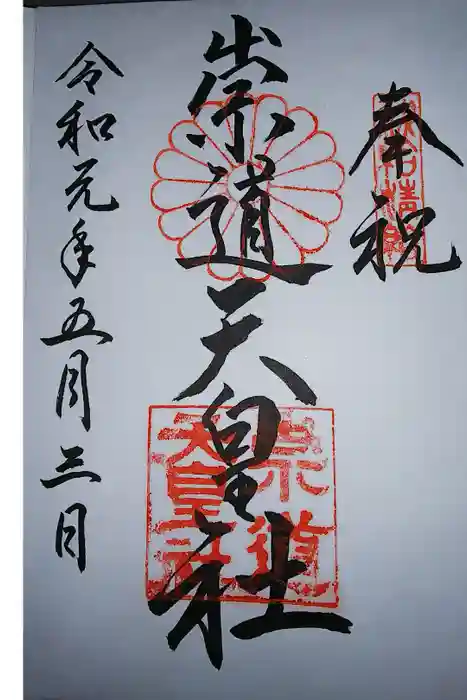 奉祝
崇道天皇社
令和元年五月三日
崇道
天皇社